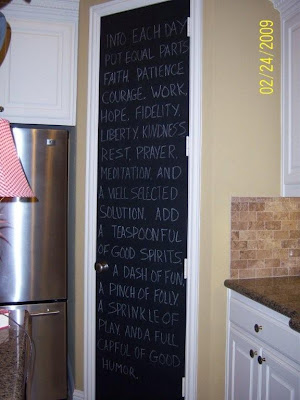 INTO EACH DAY
PUT EQUAL PARTS
FAITH, PATIENCE
COURAGE, WORK,
HOPE, FIDELITY,
LIBERTY, KINDNESS
REST, PRAYER,
MEDITATION, AND
A WELL SELECTED
SOLUTION. ADD
A TEASPOONFUL
OF GOOD SPIRITS,
A DASH OF FUN,
A PINCH OF FOLLY,
A SPRINKLE OF
PLAY, AND A FULL
CAPFUL OF GOOD
HUMOR.
02/24/2009